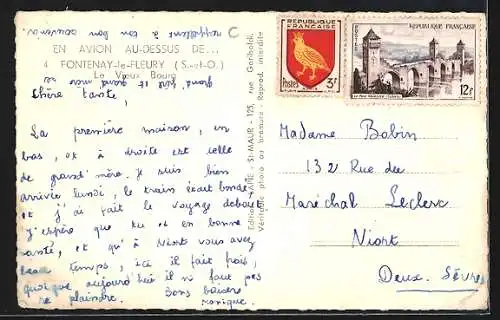 rappellent à ton bon souvenir.
grand'père et grand'mère se
C
EN AVION AU-DESSUS DE...
4. FONTENAY-le-FLEURY (S.-et-O.)
Le Vieux Bourg
Chère tante,
La première maison, en
bas, et à droite est celle
de grand'mère. Je suis bien
arrivée lundi, le train était bondé
et j'ai fait le voyage debout
J'espère que tu es en bonne
santé, et qu'à Niort vous avez
beau temps, ici il fait froid,
quoique aujourd'hui il ne faut pas
se plaindre. Bons baisers
Monique.
Edition LAPIE - St-MAUR - 125, rue Garibaldi.
Véritable photo au bromure - Reprod. interdite
RÉPUBLIQUE FRANÇAISE
Postes
3F
POSTES
RÉPUBLIQUE FRANÇAISE
12F
Madame Bobin
132 Rue du
Maréchal Leclerc
Niort
Deux-Sèvres